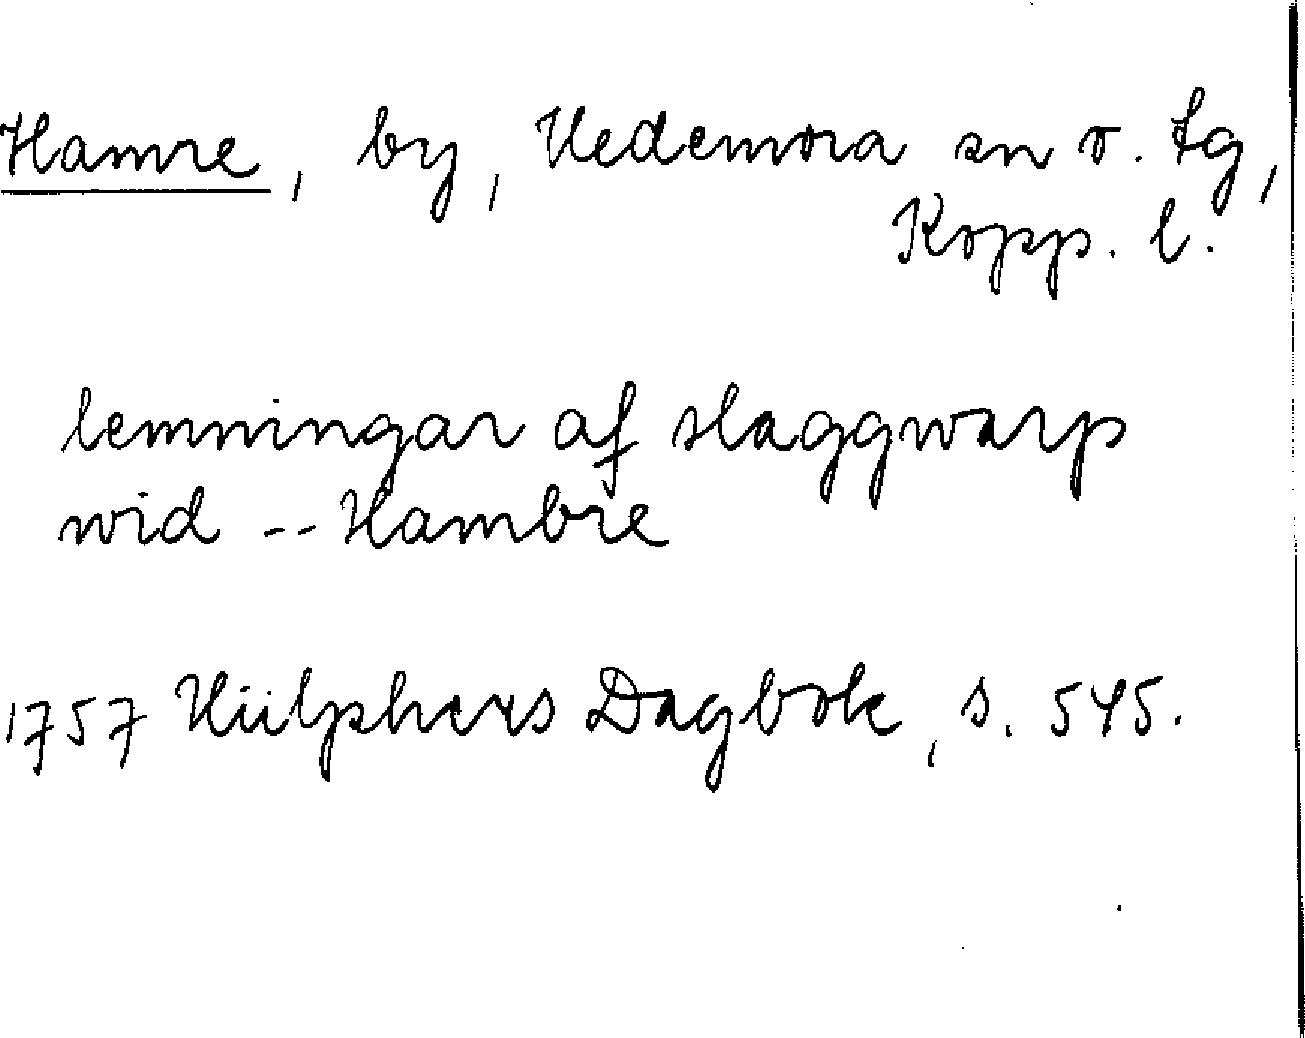 Hamre, by, Hedemora sn o. tg,
Kopp. l.
lemningar af slaggwarp
wid -- Hambre
1757 Hülphers Dagbok, s. 545.